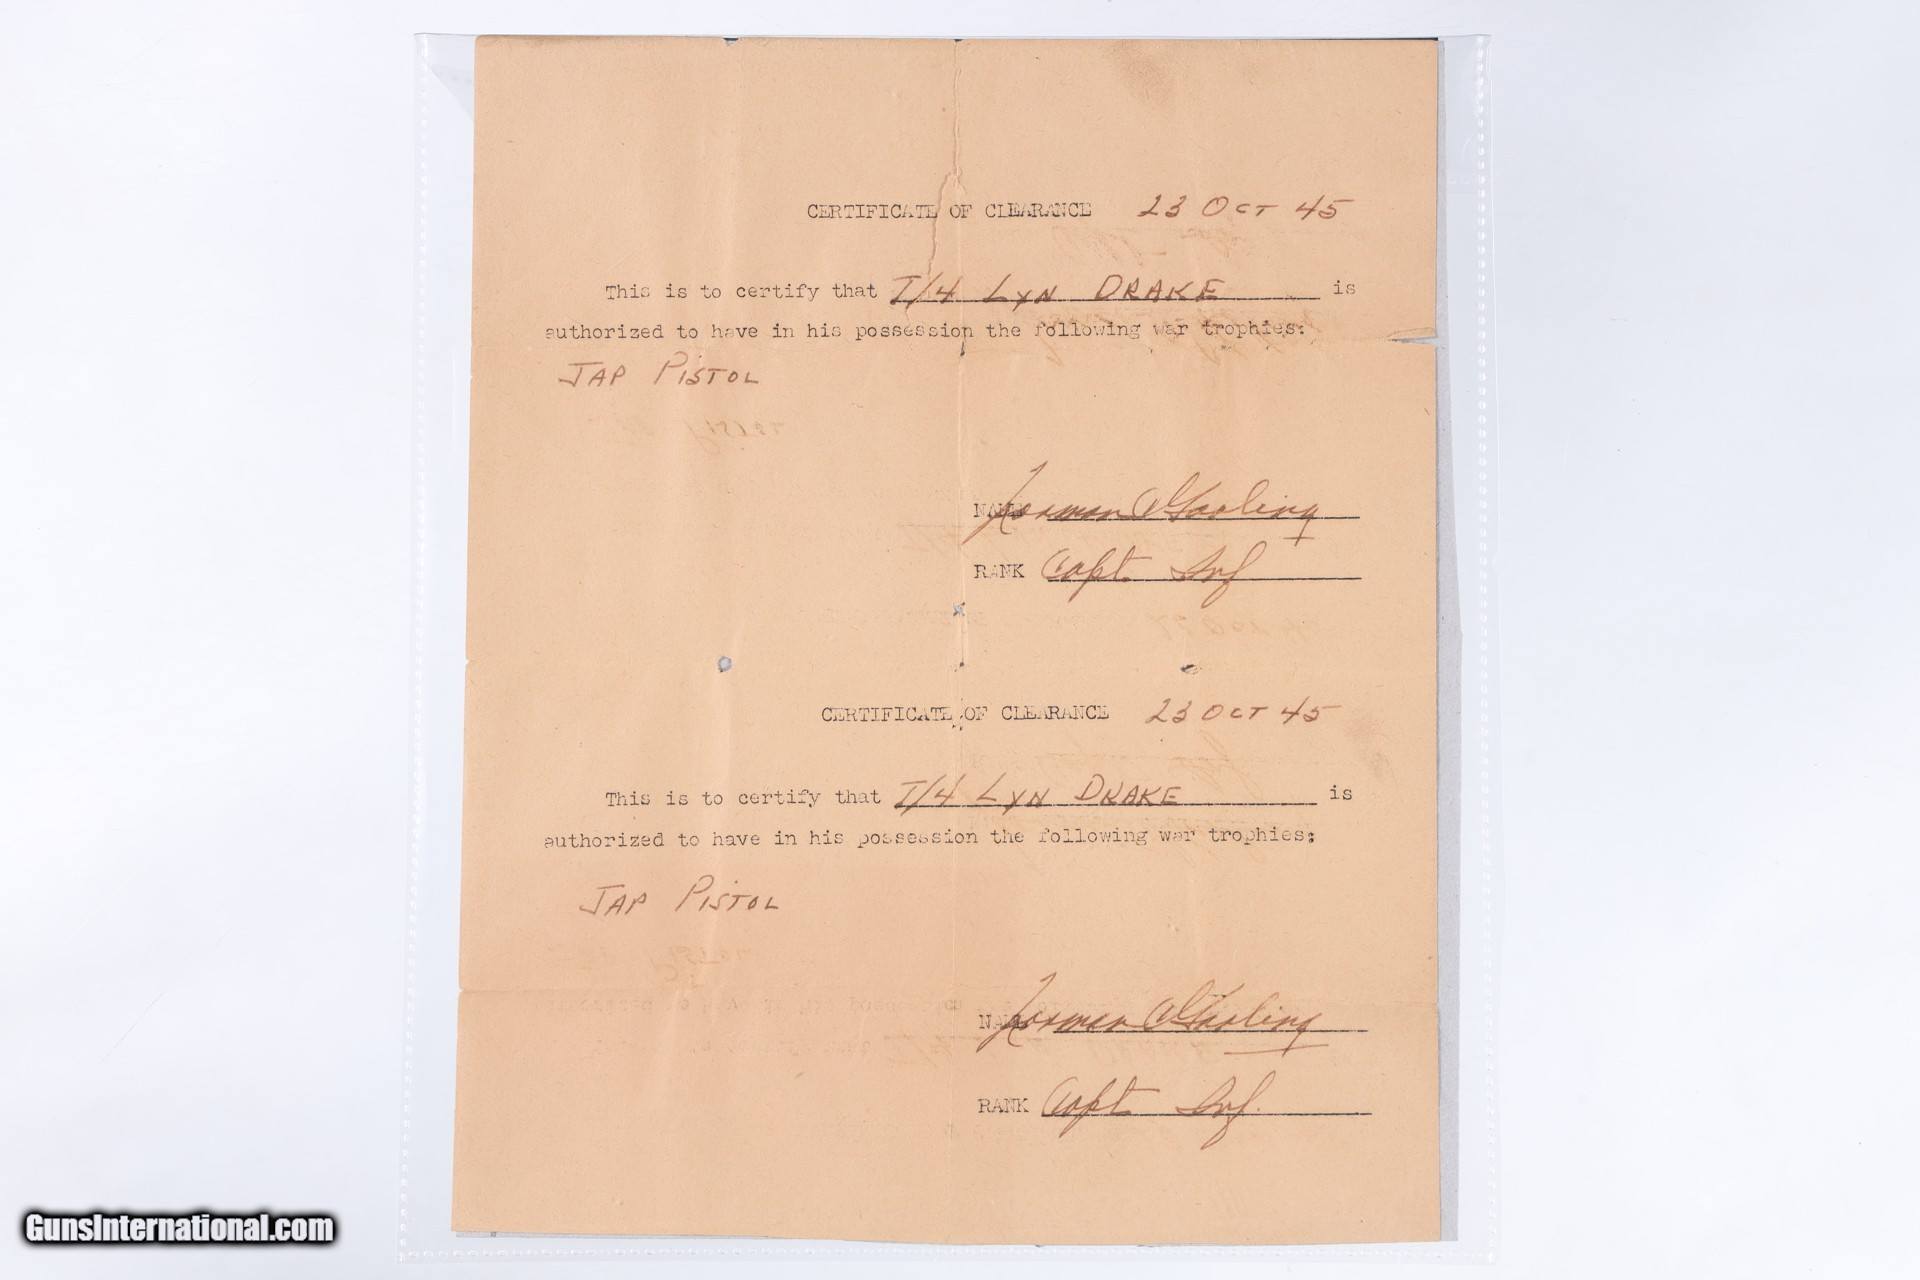 CERTIFICATE OF CLEARANCE 23 OCT 45
This is to certify that T/4 LYN DRAKE is
authorized to have in his possession the following war trophies:
JAP PISTOL
NAME Norman
RANK Capt. Inf
CERTIFICATE OF CLEARANCE 23 OCT 45
This is to certify that T/4 LYN DRAKE is
authorized to have in his possession the following war trophies:
JAP PISTOL
NAME Norman
RANK Capt. Inf.
GunsInternational.com